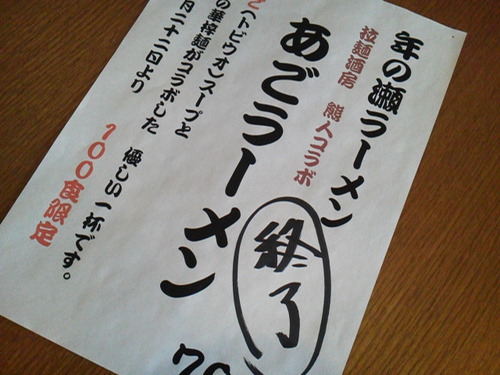 年の瀬ラーメン
拉麺酒房 熊人コラボ
あごラーメン
終了
(トビウオ)スープと
の華粋麺がコラボした
月二十二日より 優しい一杯です。
100食限定